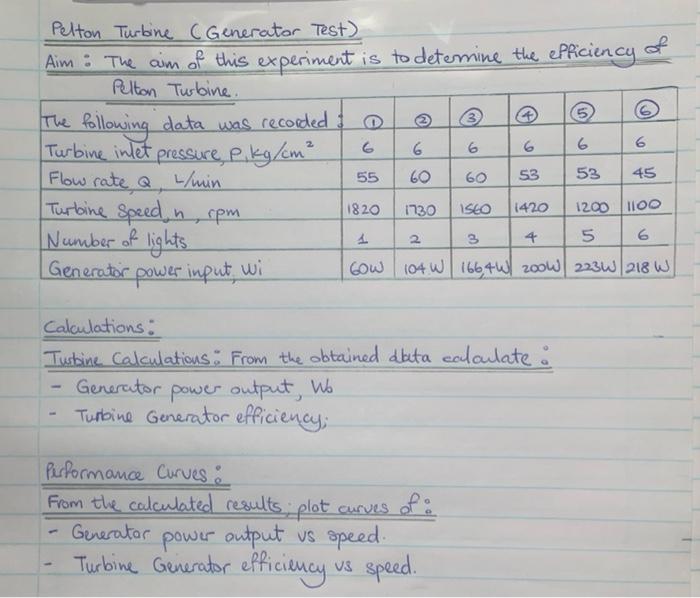 Pelton Turbine (Generator Test)
Aim : The aim of this experiment is to determine the efficiency of
Pelton Turbine.
The following data was recorded : ① ② ③ ④ ⑤ ⑥
Turbine inlet pressure, P, kg/cm² 6 6 6 6 6 6
Flow rate, Q, L/min 55 60 60 53 53 45
Turbine Speed, n, rpm 1820 1730 1560 1420 1200 1100
Number of lights 1 2 3 4 5 6
Generator power input, Wi 60W 104W 166,4W 200W 223W 218W
Calculations :
Turbine Calculations : From the obtained data calculate :
- Generator power output, Wo
- Turbine Generator efficiency;
Performance Curves :
From the calculated results; plot curves of :
- Generator power output vs speed.
- Turbine Generator efficiency vs speed.